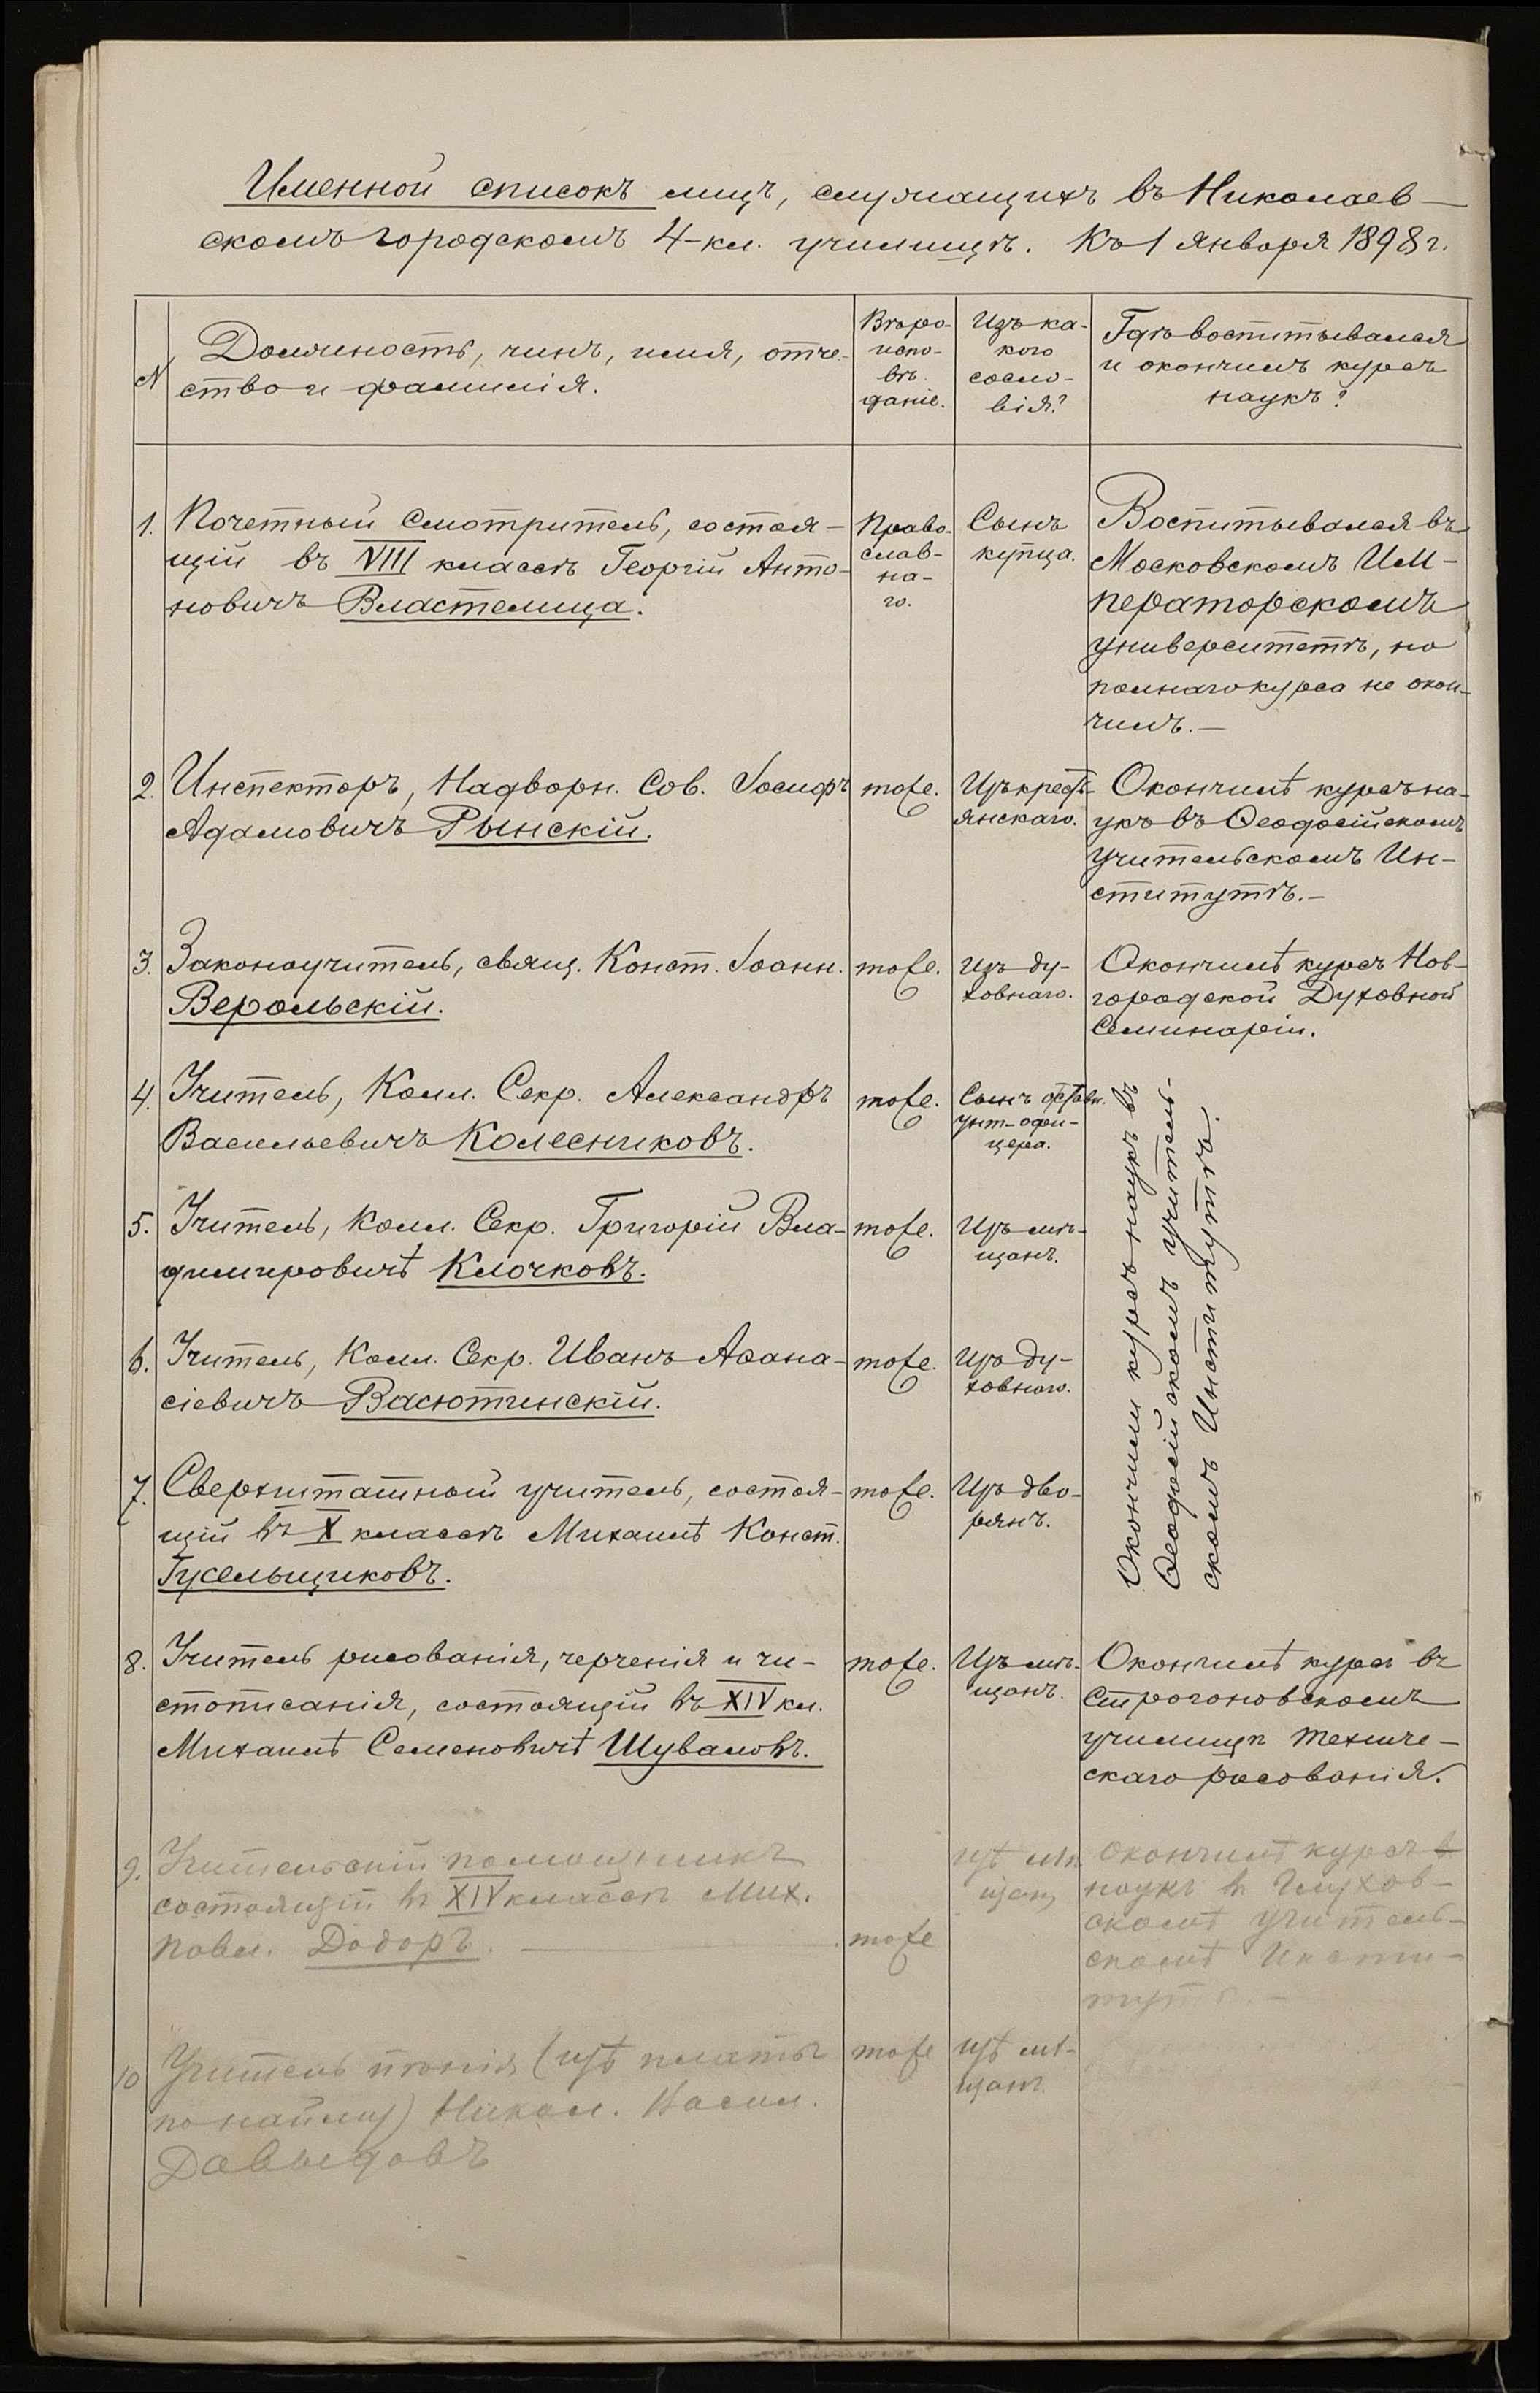 Именной списокъ лицъ, служащихъ въ Николаев-
скомъ городскомъ 4-кл. училищѣ. Къ 1 Января 1898 г.
№
Должность, чинъ, имя, отче-
ство и фамилія.
Вѣро-
испо-
вѣ-
даніе.
Изъ ка-
кого
сосло-
вія?
Гдѣ воспитывался
и окончилъ курсъ
наукъ?
1.
Почетный Смотритель, состоя-
щій въ VIII классѣ Георгій Анто-
новичъ Властелица.
Право-
слав-
на-
го.
Сынъ
купца.
Воспитывался въ
Московскомъ ИМ-
ператорскомъ
университетѣ, но
полнаго курса не окон-
чилъ.—
2.
Инспекторъ, Надворн. Сов. Іосифъ
Адамовичъ Рынскій.
тоже.
Изъ крест-
янскаго.
Окончилъ курсъ на-
укъ въ Ѳеодосійскомъ
Учительскомъ Ин-
ститутѣ.—
3.
Законоучитель, свящ. Конст. Іоанн.
Верольскій.
тоже.
Изъ ду-
ховнаго.
Окончилъ курсъ Нов-
городской Духовной
Семинаріи.
4.
Учитель, Колл. Секр. Александръ
Васильевичъ Колесниковъ.
тоже.
Сынъ отставн.
унт-офи-
цера.
Окончили курсъ наукъ въ
Ѳеодосійскомъ учитель-
скомъ Институтѣ.
5.
Учитель, Колл. Секр. Григорій Вла-
димировичъ Клочковъ.
тоже.
Изъ мѣ-
щанъ.
6.
Учитель, Колл. Секр. Иванъ Аѳана-
сіевичъ Васютинскій.
тоже.
Изъ ду-
ховнаго.
7.
Сверхштатный учитель, состоя-
щій въ X классѣ Михаилъ Конст.
Гусельщиковъ.
тоже.
Изъ дво-
рянъ.
8.
Учитель рисованія, черченія и чи-
стописанія, состоящій въ XIV кл.
Михаилъ Семеновичъ Шуваловъ.
тоже.
Изъ мѣ-
щанъ.
Окончилъ курсъ въ
Строгоновскомъ
училищѣ техниче-
скаго рисованія.
9.
Учительскій помощникъ
состоящій въ XIV классѣ Мих.
Павл. Додоръ.
тоже
изъ мѣ
щан
Окончилъ курсъ
наукъ въ Глухов-
скомъ учитель-
скомъ Инсти-
тутѣ.—
10
Учитель пѣнія (изъ платы
по найму) Никол. Васил.
Давыдовъ
тоже
изъ мѣ-
щанъ.